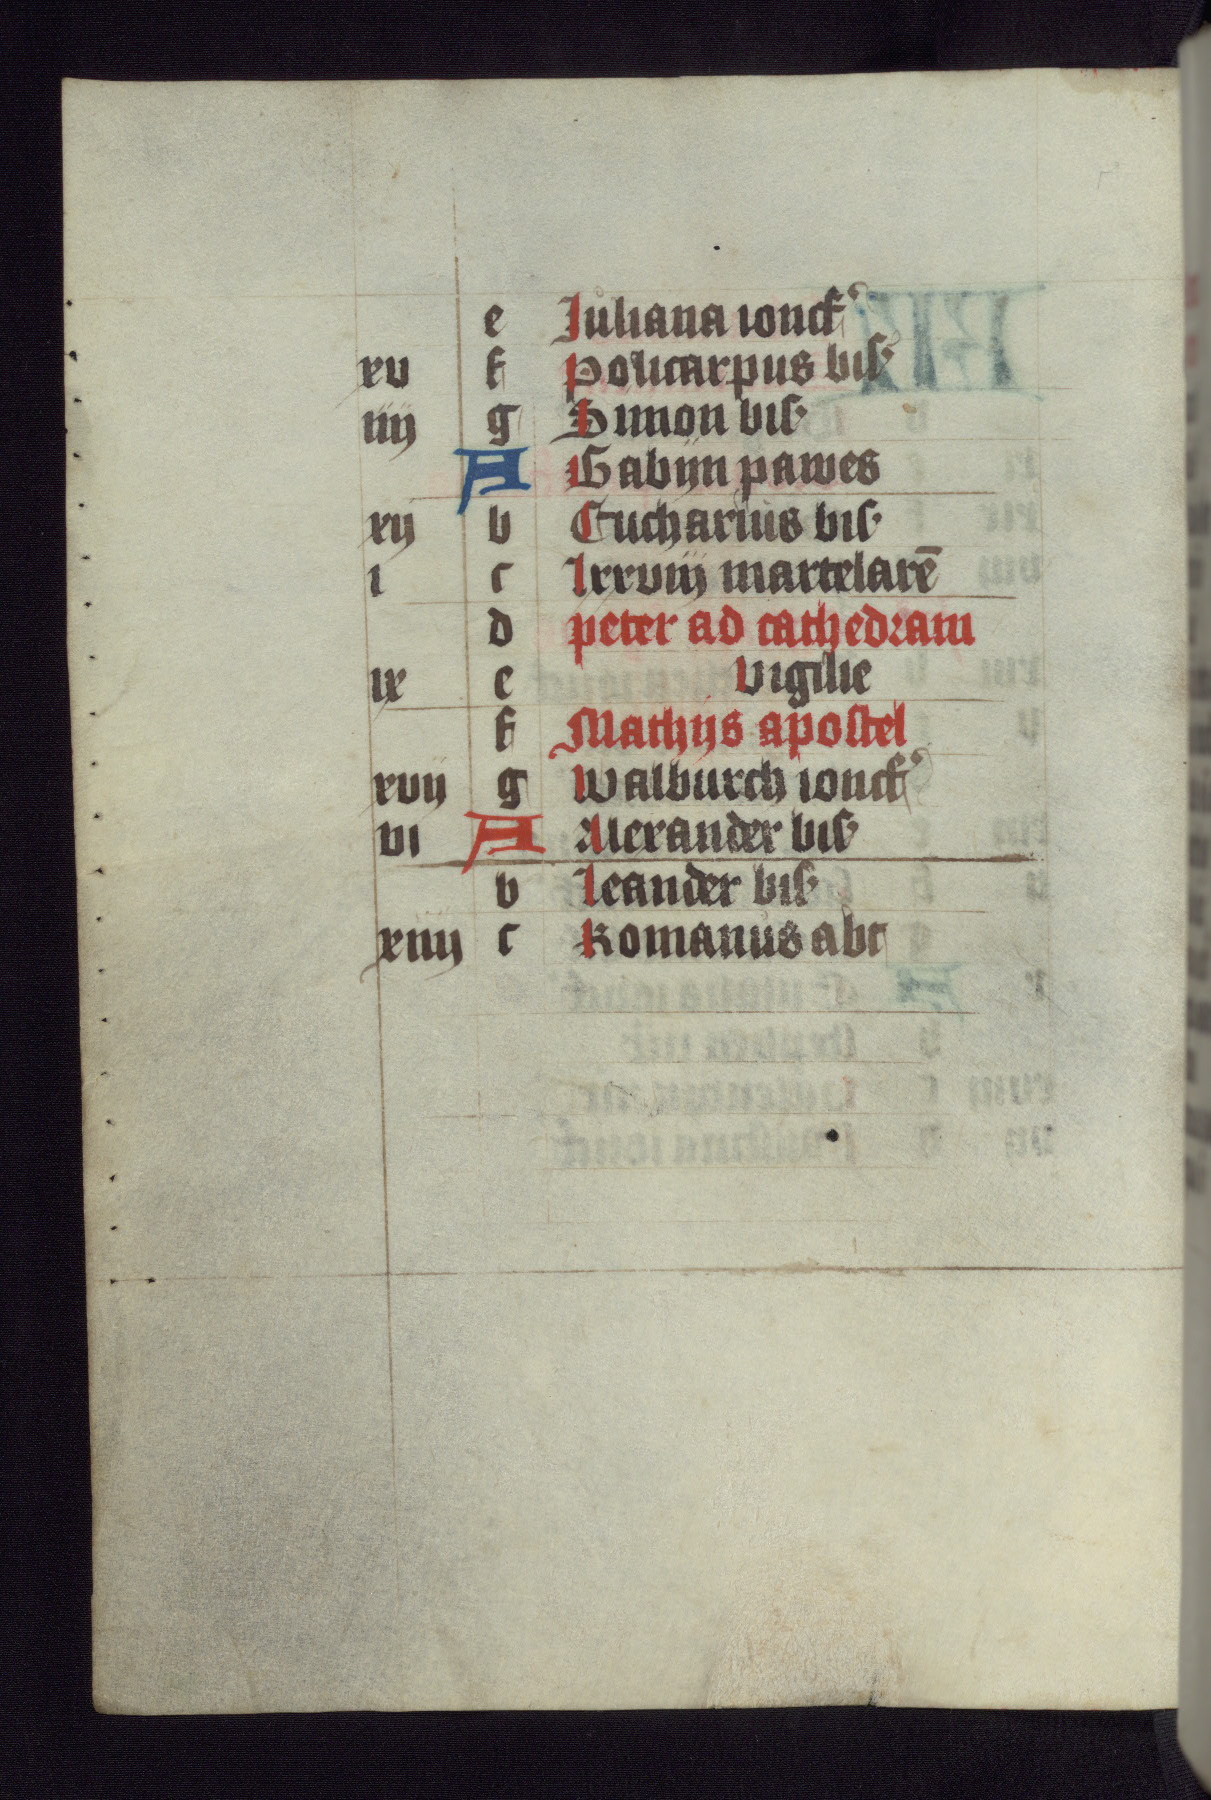 e Juliana ionckꝰ
xv f Policarpus bis
iiij g Simon bis
A Gabijn pawes
xij b Eucharius bis
i c lxxviij martelarē
d peter ad cathedram
ix e vigilie
f Mathijs apostel
xvij g Walburch ionckꝰ
vi A Alexander bis
b leander bis
xiiij c Romanus abt